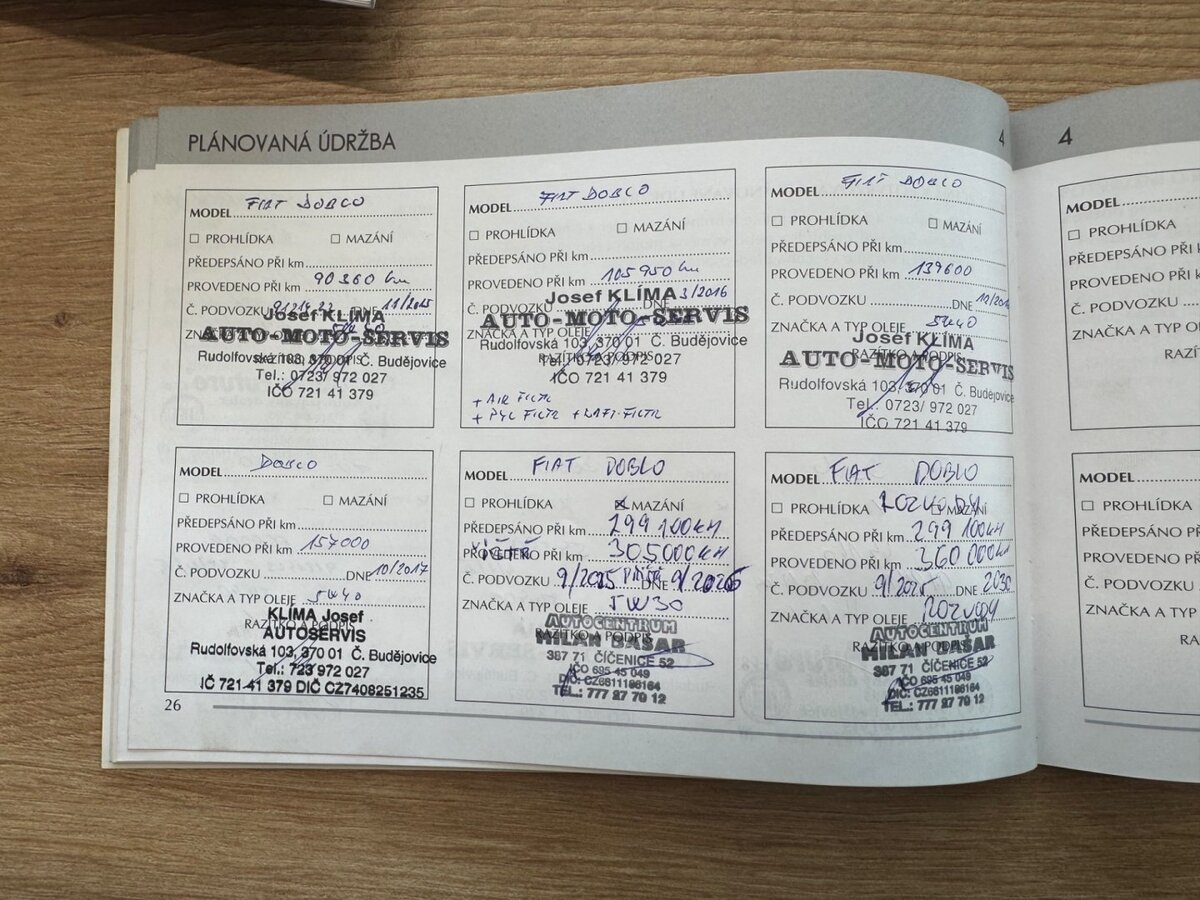 PLÁNOVANÁ ÚDRŽBA
4
MODEL FIAT DOBLO
☐ PROHLÍDKA ☐ MAZÁNÍ
PŘEDEPSÁNO PŘI km
PROVEDENO PŘI km 90 360 km
Č. PODVOZKU DNE 11/2015
ZNAČKA A TYP OLEJE 5W40
RAZÍTKO A PODPIS
Josef KLÍMA
AUTO-MOTO-SERVIS
Rudolfovská 103, 370 01 Č. Budějovice
Tel.: 0723/ 972 027
IČO 721 41 379
MODEL FIAT DOBLO
☐ PROHLÍDKA ☐ MAZÁNÍ
PŘEDEPSÁNO PŘI km
PROVEDENO PŘI km 105 950 km
Č. PODVOZKU DNE 3/2016
ZNAČKA A TYP OLEJE
RAZÍTKO A PODPIS
Josef KLÍMA
AUTO-MOTO-SERVIS
Rudolfovská 103, 370 01 Č. Budějovice
Tel.: 0723/ 972 027
IČO 721 41 379
+ AIR FILTR
+ PYL FILTR
MODEL FIAT DOBLO
☐ PROHLÍDKA ☐ MAZÁNÍ
PŘEDEPSÁNO PŘI km
PROVEDENO PŘI km 139600
Č. PODVOZKU DNE
ZNAČKA A TYP OLEJE 5W40
RAZÍTKO A PODPIS
Josef KLÍMA
AUTO-MOTO-SERVIS
Rudolfovská 103, 370 01 Č. Budějovice
Tel.: 0723/ 972 027
IČO 721 41 379
MODEL DOBLO
☐ PROHLÍDKA ☐ MAZÁNÍ
PŘEDEPSÁNO PŘI km
PROVEDENO PŘI km 157000
Č. PODVOZKU DNE 10/2017
ZNAČKA A TYP OLEJE 5W40
RAZÍTKO A PODPIS
KLÍMA Josef
AUTOSERVIS
Rudolfovská 103, 370 01 Č. Budějovice
Tel.: 723 972 027
IČ 721 41 379 DIČ CZ7408251235
MODEL FIAT DOBLO
☐ PROHLÍDKA ☒ MAZÁNÍ
PŘEDEPSÁNO PŘI km 299 100 KM
PROVEDENO PŘI km 305000 KM
PŘÍŠTĚ
Č. PODVOZKU 9/2025 PŘÍŠTĚ DNE 9/2026
ZNAČKA A TYP OLEJE 5W30
RAZÍTKO A PODPIS
AUTOCENTRUM
MILAN DAŠAR
387 71 ČÍČENICE 52
IČO 695 45 049
DIČ: CZ6811186164
TEL.: 777 27 70 12
MODEL FIAT DOBLO
☐ PROHLÍDKA ROZVODY ☐ MAZÁNÍ
PŘEDEPSÁNO PŘI km 299 100 KM
PROVEDENO PŘI km 360 000 KM
Č. PODVOZKU 9/2025 DNE 2030
ZNAČKA A TYP OLEJE ROZVODY
RAZÍTKO A PODPIS
AUTOCENTRUM
MILAN DAŠAR
387 71 ČÍČENICE 52
IČO 695 45 049
DIČ: CZ6811186164
TEL.: 777 27 70 12
26
4
MODEL
☐ PROHLÍDKA
PŘEDEPSÁNO PŘI
PROVEDENO PŘI
Č. PODVOZKU
ZNAČKA A TYP O
RAZÍ
MODEL
☐ PROHLÍDKA
PŘEDEPSÁNO PŘI
PROVEDENO PŘI
Č. PODVOZKU
ZNAČKA A TYP
RA